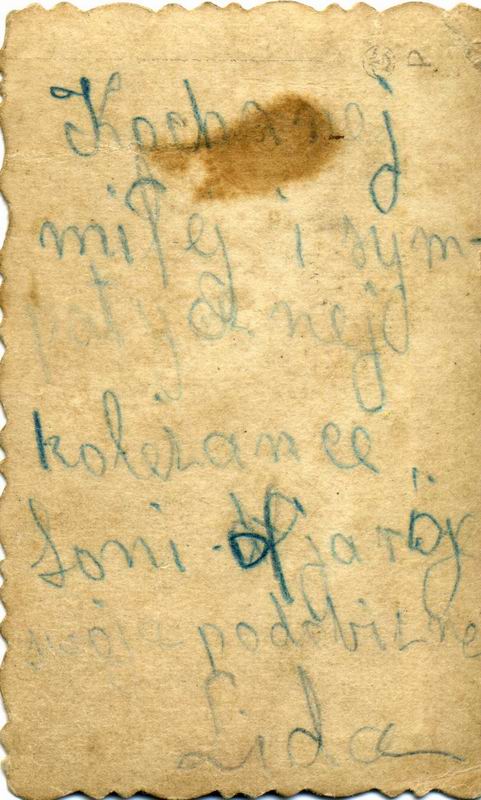 Kochanej
miłej i sym-
patycznej
koleżance
Soni
swoją podobiznę
Lida